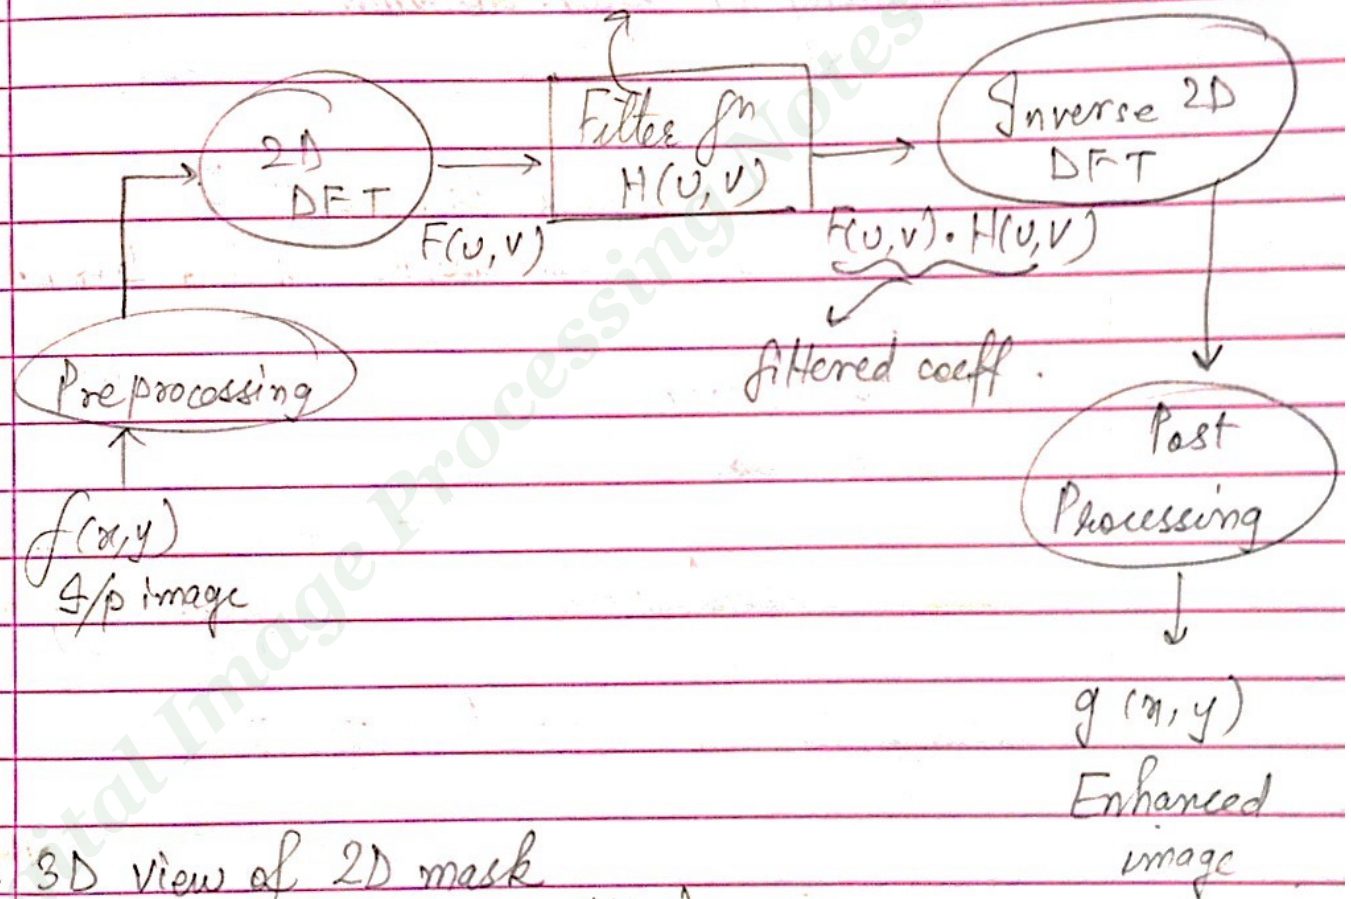 2D
DFT
Filter fn
H(U,V)
Inverse 2D
DFT
F(U,V)
F(U,V) · H(U,V)
filtered coeff.
Preprocessing
f(x,y)
I/p image
Post
Processing
g(x,y)
Enhanced
image
3D view of 2D mask
ital Image Processing Notes